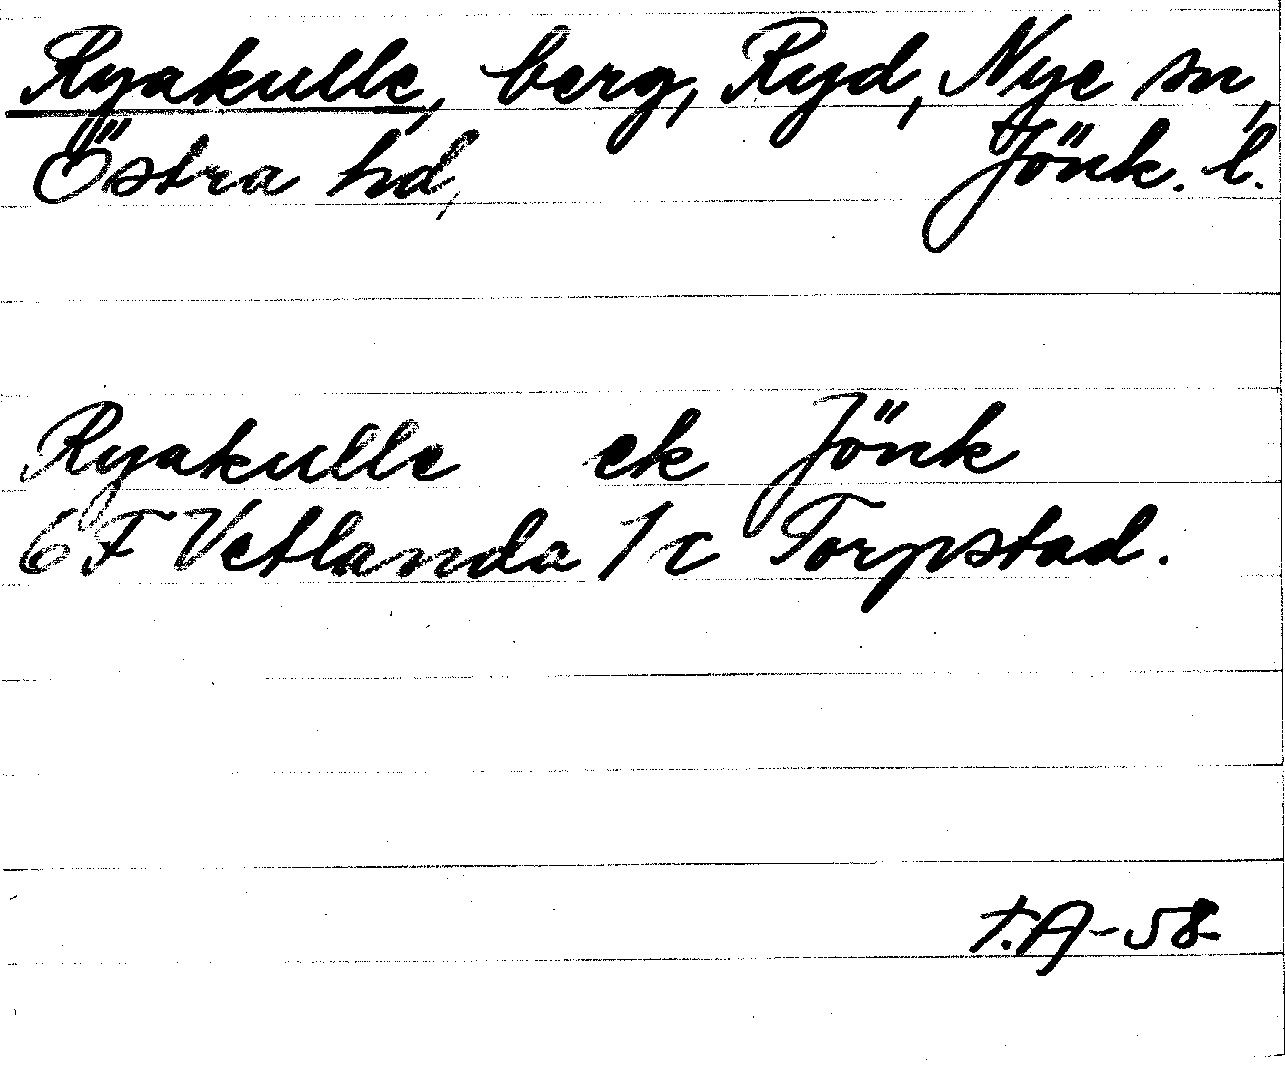 Ryakulle, berg, Ryd, Nye sn,
Östra hd, Jönk. l.
Ryakulle ek Jönk
6F Vetlanda 1c Torpstad.
T.A-58